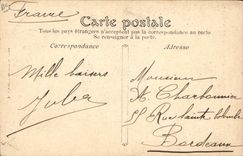 France
Carte postale
Tous les pays étrangers n'acceptent pas la correspondance au recto
Se renseigner à la poste.
Correspondance
Adresse
Mille baisers
Julia
Monsieur
A. Charbonnier
Rue Sainte Colombe
Bordeaux